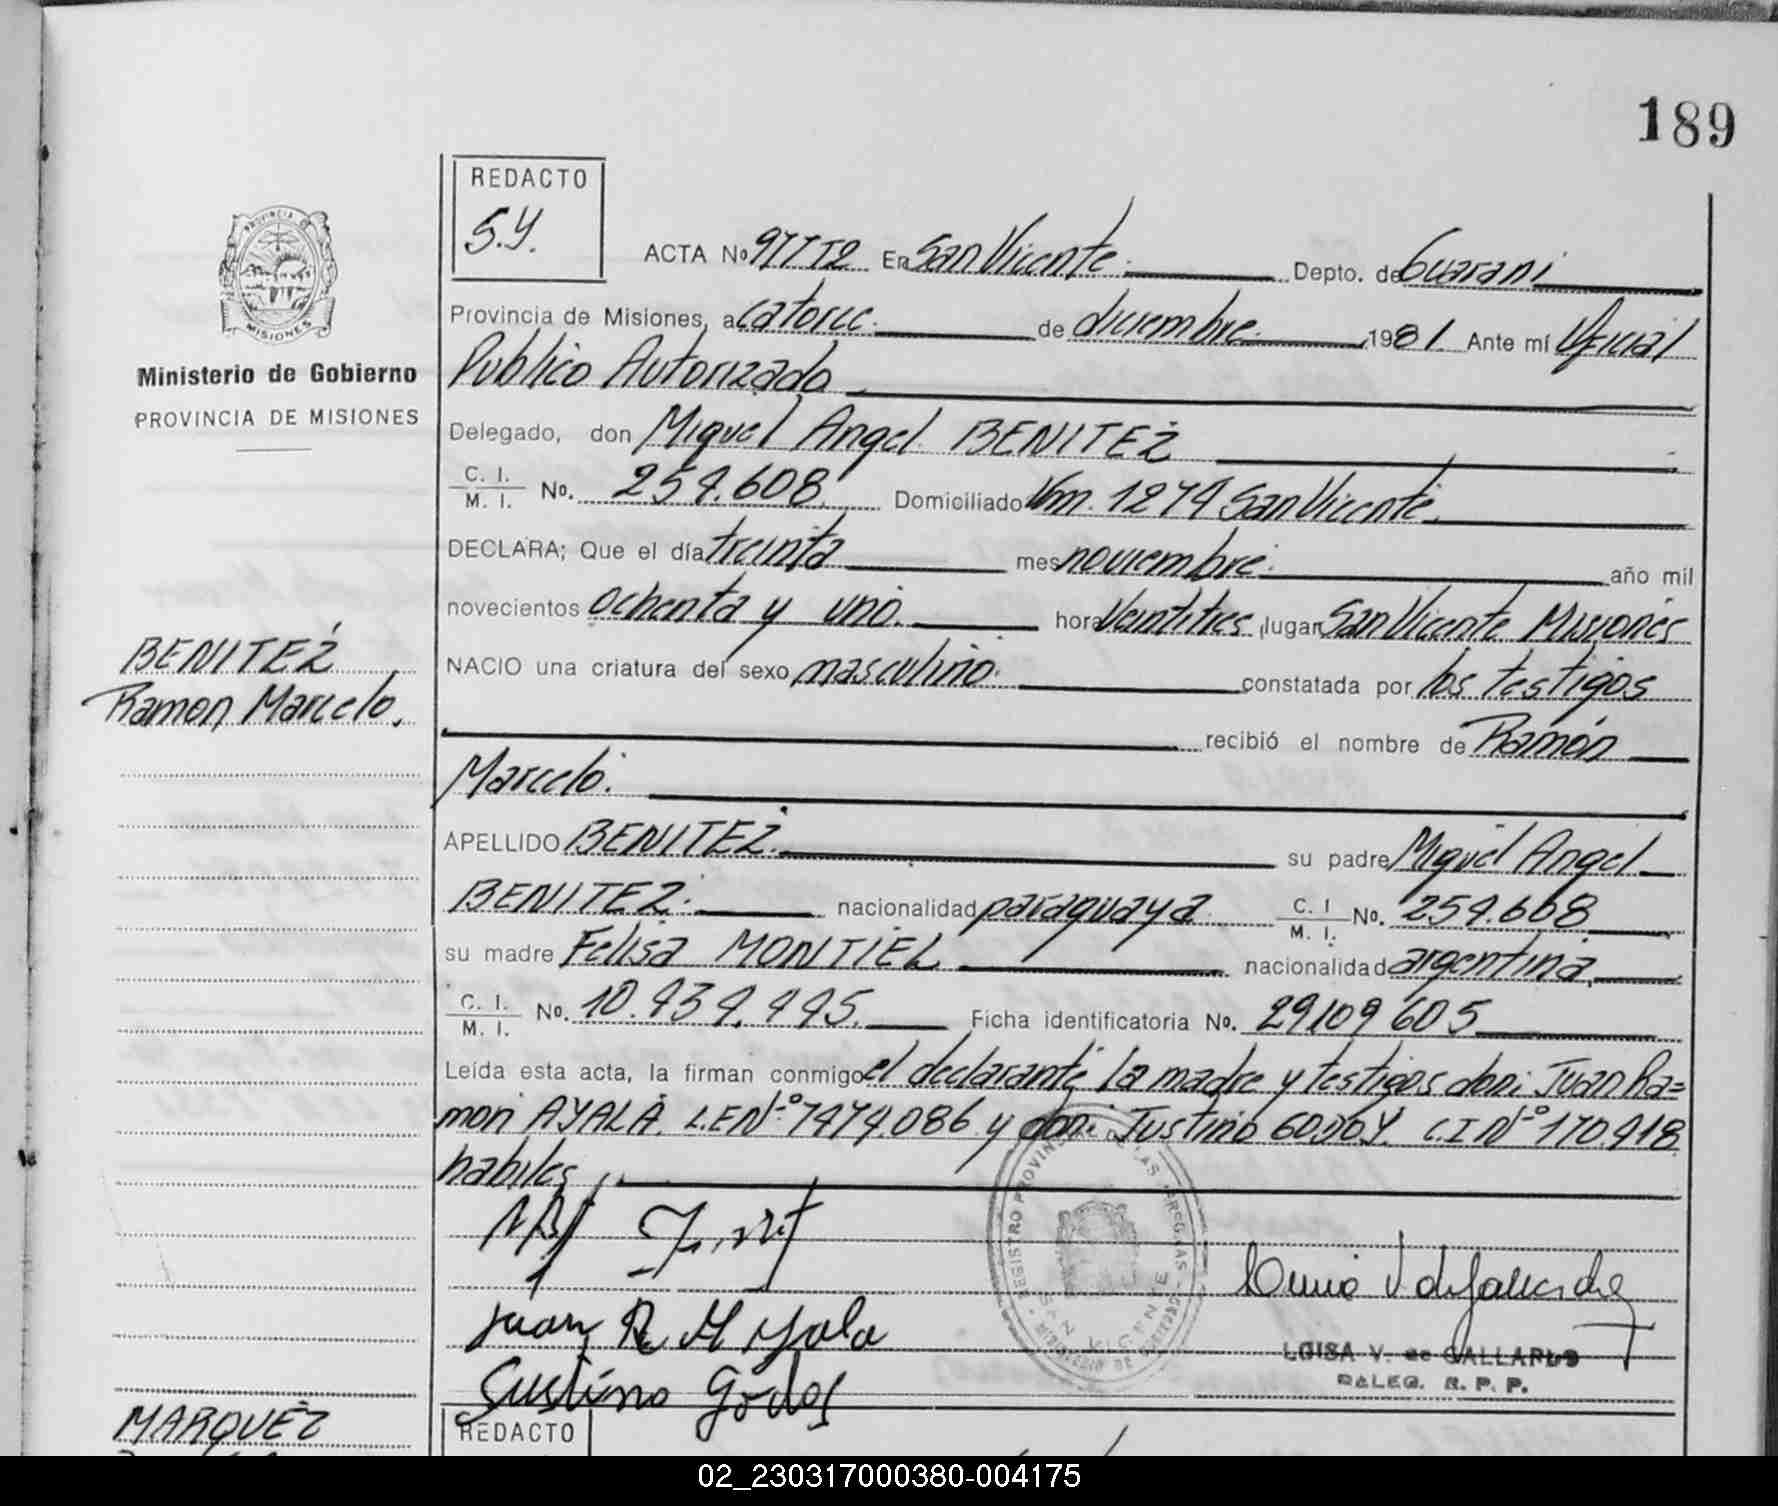 189
REDACTO
S.Y.
ACTA No 977 T2 En San Vicente. Depto. de Guarani
Provincia de Misiones, a catorce. de diciembre. 1981. Ante mí Oficial
Publico Autorizado
Ministerio de Gobierno
PROVINCIA DE MISIONES
Delegado, don Miguel Angel BENITEZ
C. I. / M. I. No. 254.608. Domiciliado Km. 1274 San Vicente.
DECLARA; Que el día treinta mes noviembre. año mil
novecientos ochenta y uno. hora veintitres, lugar San Vicente Misiones
BENITEZ
Ramon Marcelo.
NACIO una criatura del sexo masculino. constatada por los testigos
recibió el nombre de Ramón
Marcelo.
APELLIDO BENITEZ. su padre Miguel Angel
BENITEZ. nacionalidad paraguaya C. I / M. I. No. 254.608
su madre Felisa MONTIEL nacionalidad argentina,
C. I. / M. I. No. 10.434.445. Ficha identificatoria No. 29109605
Leída esta acta, la firman conmigo el declarante la madre y testigos don: Juan Ra=
mon AYALA. L.E Nº 7474.086 y don: Justino GODOY. C.I Nº 170.418
habiles,
REGISTRO PROVINCIAL DE LAS PERSONAS
SAN VICENTE
MINISTERIO DE GOBIERNO
Juan R. Ayala
Justino Godoy
LUISA V. de GALLARDO
DALEG. R. P. P.
MARQUEZ
REDACTO
02_230317000380-004175